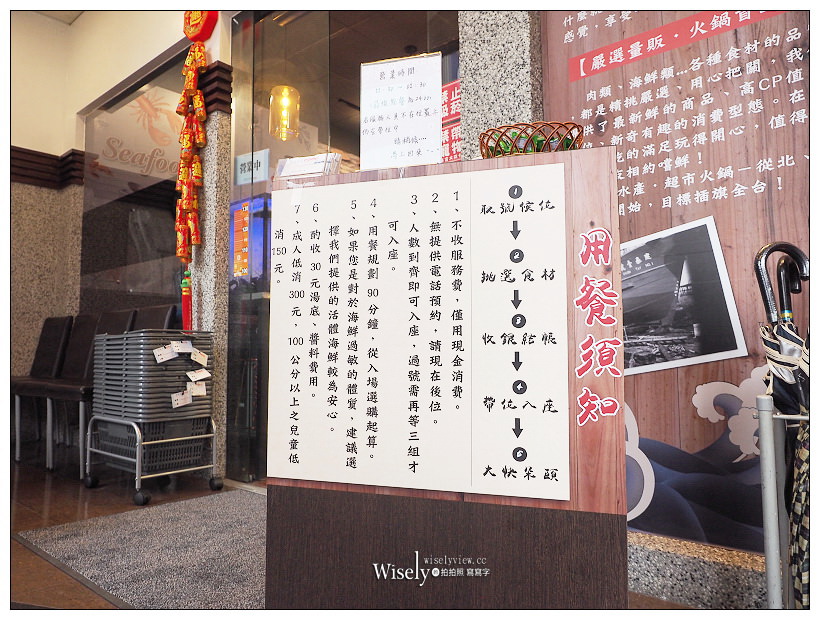 用餐須知
❶
取號候位
❷
挑選食材
❸
收銀結帳
❹
帶位入座
❺
大快朵頤
1、不收服務費，僅用現金消費。
2、無提供電話預約，請現在後位。
3、人數到齊即可入座，過號需再等三組才
可入座。
4、用餐規劃 90 分鐘，從入場選購起算。
5、如果您是對於海鮮過敏的體質，建議選
擇我們提供的活體海鮮較為安心。
6、酌收 30 元湯底、醬料費用。
7、成人低消 300 元，100 公分以上之兒童低
消 150 元。
Seafoo
營業中
營業時間
【嚴選量販．火鍋首
感覺，享受
肉類、海鮮類…各種食材的品
都是精挑嚴選、用心把關，我
供了最新鮮的商品、高CP值
、新奇有趣的消費型態。在
吃的滿足玩得開心，值得
在相約嚐鮮！
水產．超市火鍋－從北、
開始，目標插旗全台！
Wisely
wiselyview.cc
拍拍照 寫寫字